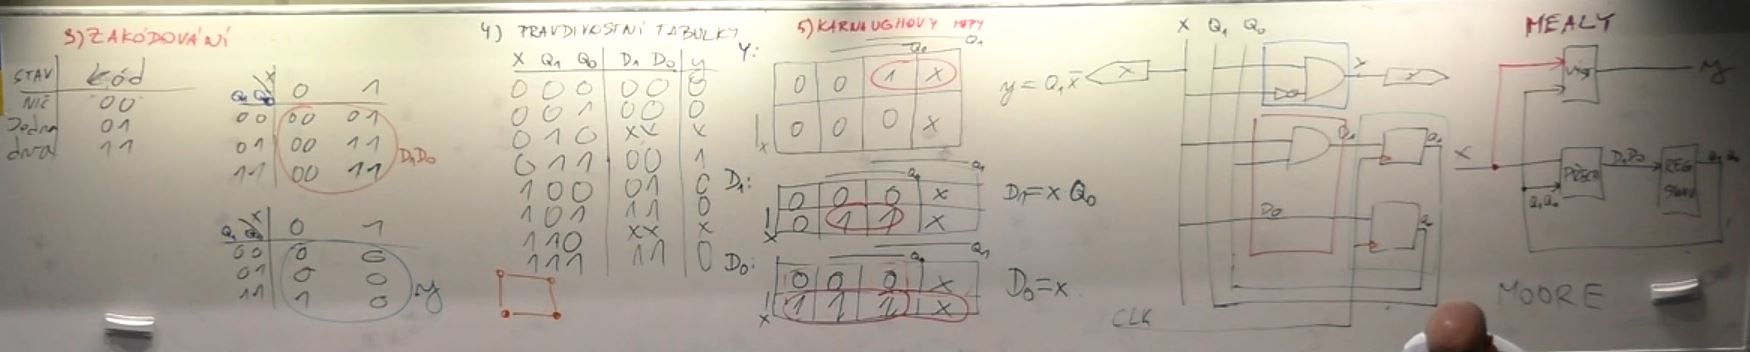 3) ZAKÓDOVÁNÍ
STAV kód
NIC 00
Jedna 01
dva 11
X
Q1 Q0 0 1
00 00 01
01 00 11
11 00 11
D1D0
X
Q1 Q0 0 1
00 0 0
01 0 0
11 1 0
y
4) PRAVDIVOSTNÍ TABULKY
X Q1 Q0 D1 D0 y
0 0 0 0 0 0
0 0 1 0 0 0
0 1 0 X X X
0 1 1 0 0 1
1 0 0 0 1 0
1 0 1 1 1 0
1 1 0 X X X
1 1 1 1 1 0
5) KARNAUGHOVY MAPY
Y: Q0 Q1
0 0 1 X
0 0 0 X
X
y = Q1 x̄
D1: Q0 Q1
0 0 0 X
0 1 1 X
X
D1 = x Q0
D0: Q0 Q1
0 0 0 X
1 1 1 X
X
D0 = x
X Q1 Q0
X
Y
Y
D1
Q1
D0
CLK
MEALY
VÝST
y
X
PŘECH
D1D0
REG
STAVU
Q1 Q0
Q1Q0
MOORE